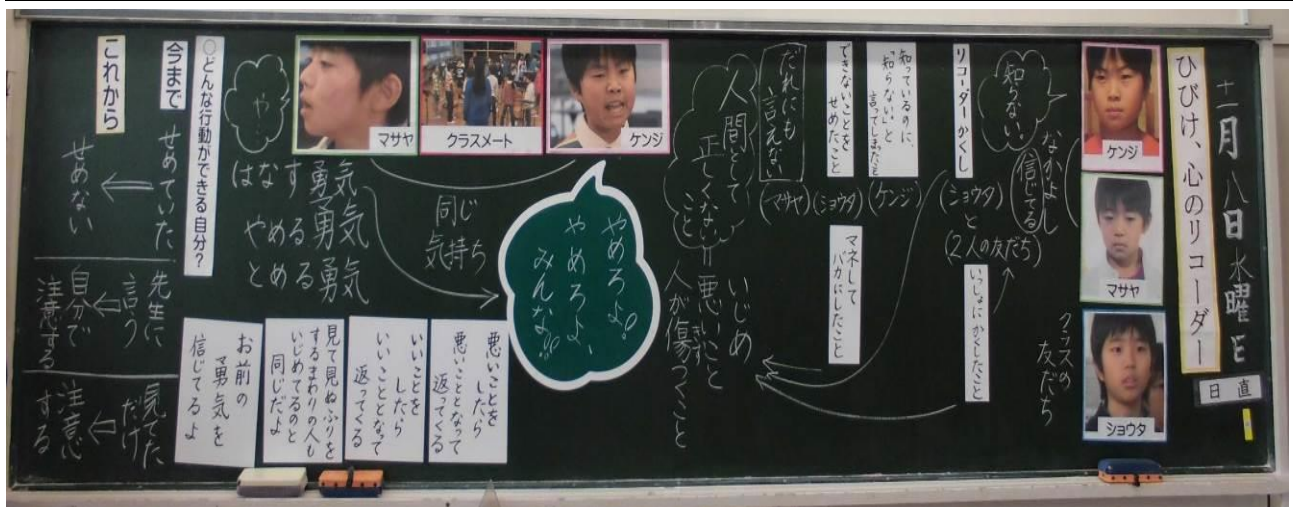 十一月八日 水曜日
日直
ひびけ、心のリコーダー
ケンジ
マサヤ
ショウタ
なかよし
信じてる
クラスの
友だち
知らない
リコーダーかくし
(ショウタ)
と
(2人の友だち)
いっしょにかくしたこと
知っているのに、
「知らない」と
言ってしまったこと
(ケンジ)
できないことを
せめたこと
(ショウタ)
マネして
バカにしたこと
だれにも
言えない
(マサヤ)
いじめ
人間として
正しくない=悪いこと
こと
人が傷つくこと
きず
ケンジ
クラスメート
マサヤ
やめろよ。
やめろよ、
みんな。
同じ
気持ち
や…
はなす勇気
やめる勇気
とめる勇気
悪いことを
したら
悪いこととなって
返ってくる
いいことを
したら
いいこととなって
返ってくる
見て見ぬふりを
するまわりの人も
いじめてるのと
同じだよ
お前の
勇気を
信じてるよ
○どんな行動ができる自分?
今まで
せめていた
先生に
言う
見てた
だけ
これから
せめない
自分で
注意する
注意
する